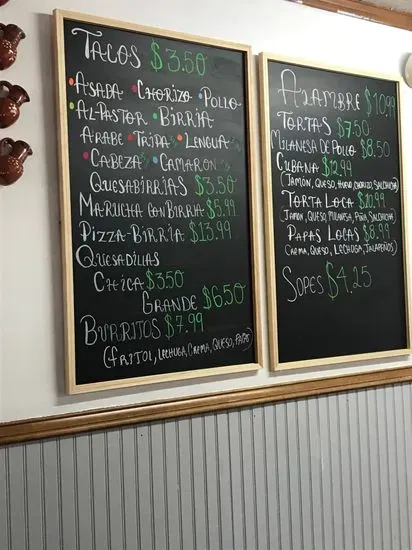 TACOS $3.50
ASADA CHORIZO POLLO
AL-PASTOR BIRRIA
ARABE TRIPA LENGUA
CABEZA CAMARON
QUESABIRRIAS $3.50
MARUCHA CON BIRRIA $5.99
PIZZA-BIRRIA $13.99
QUESADILLAS
CHICA $3.50
GRANDE $6.50
BURRITOS $7.99
(FRITOL, LECHUGA, CREMA, QUESO, PAPAS)
ALAMBRE $10.99
TORTAS $7.50
MILANESA DE POLLO $8.50
CUBANA $12.99
(JAMÓN, QUESO, HUEVO, CHORIZO, SALCHICHA)
TORTA LOCA $10.99
(JAMON, QUESO, MILANESA, PIÑA, SALCHICHA)
PAPAS LOCAS $8.99
(CREMA, QUESO, LECHUGA, JALAPEÑOS)
SOPES $4.25